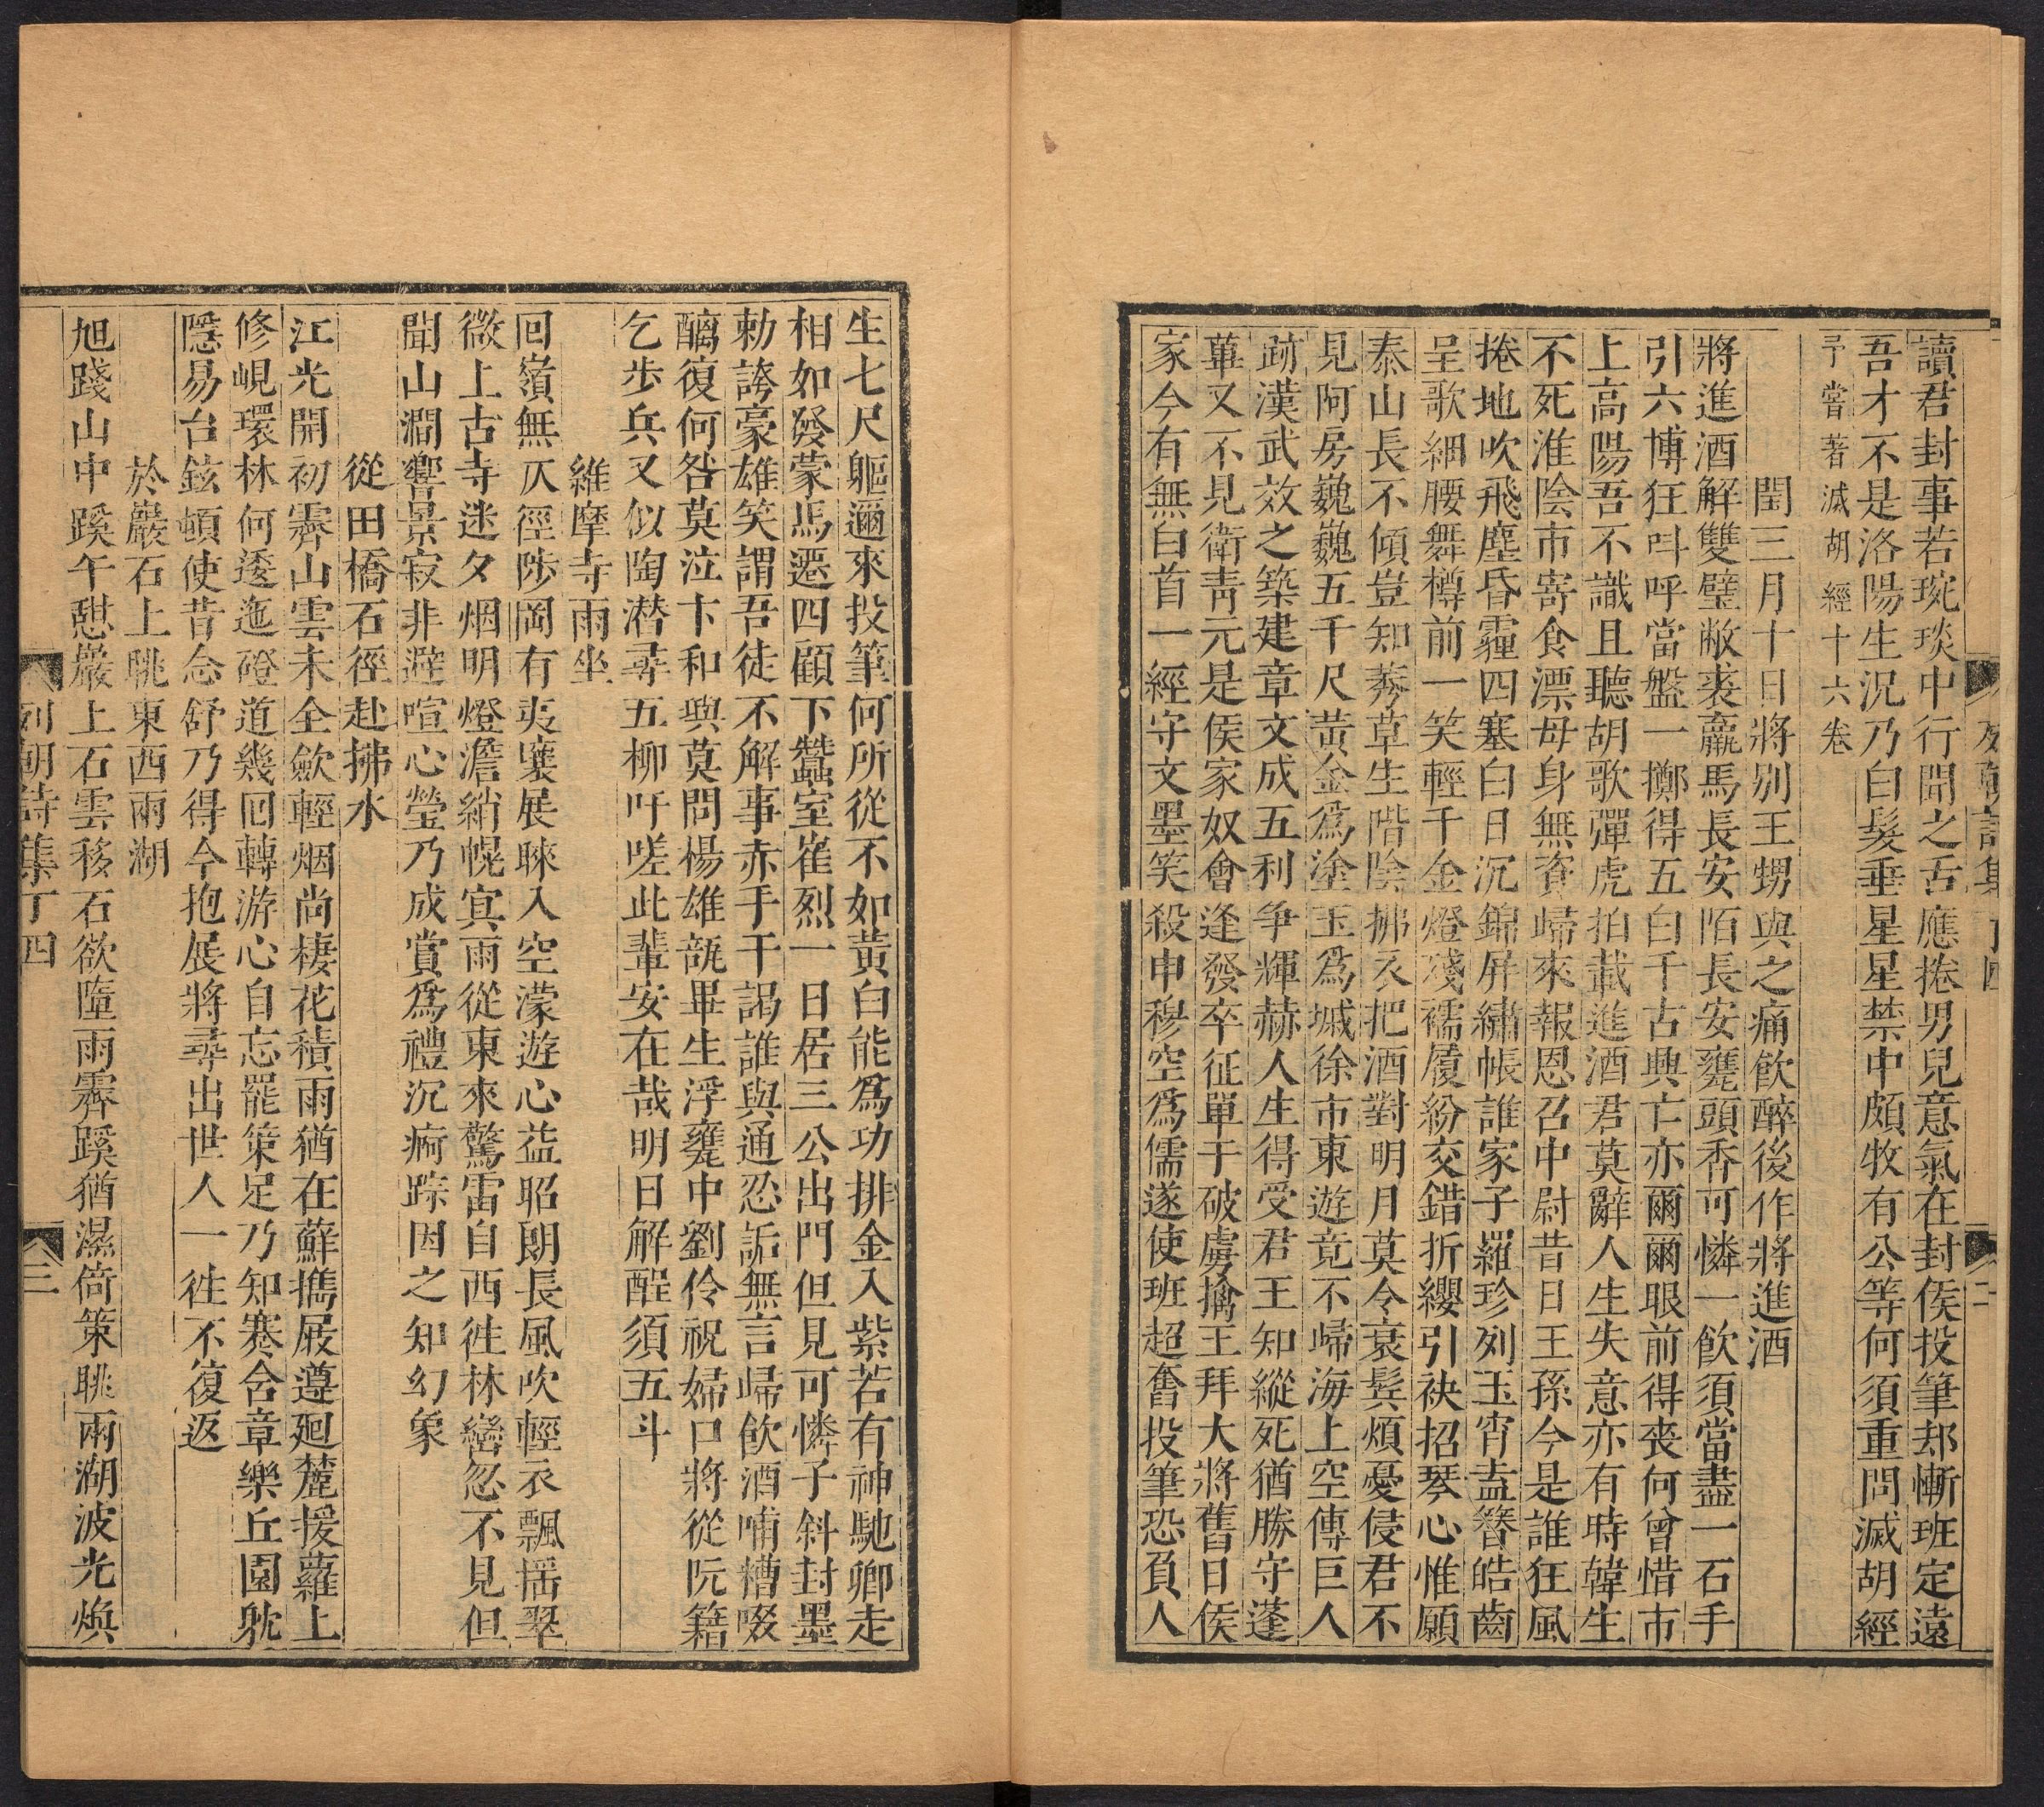 讀君封事若琬琰中行聞之舌應捲男兒意氣在封侯投筆却慚班定遠
吾才不是洛陽生況乃白髮垂星星禁中頗牧有公等何須重問滅胡經
予嘗著滅胡經十六卷
閏三月十日將別王甥與之痛飲醉後作將進酒
將進酒解雙璧敝裘羸馬長安陌長安甕頭香可憐一飲須當盡一石手
引六博狂呌呼當盤一擲得五白千古興亡亦爾爾眼前得喪何曾惜市
上高陽吾不識且聽胡歌彈虎拍載進酒君莫辭人生失意亦有時韓生
不死淮陰市寄食漂母身無資歸來報恩召中尉昔日王孫今是誰狂風
捲地吹飛塵昏霾四塞白日沉錦屏繡帳誰家子羅珍列玉宵盍簪皓齒
呈歌細腰舞樽前一笑輕千金燈殘襦履紛交錯折纓引袂招琴心惟願
泰山長不傾豈知蓩草生階陰拂衣把酒對明月莫令衰髩煩憂侵君不
見阿房巍巍五千尺黃金爲塗玉爲墄徐市東遊竟不歸海上空傳巨人
跡漢武效之築建章文成五利爭輝赫人生得受君王知縱死猶勝守蓬
蓽又不見衛靑元是侯家奴會逢發卒征單于破虜擒王拜大將舊日侯
家今有無白首一經守文墨笑殺申穆空爲儒遂使班超奮投筆恐負人
生七尺軀邇來投筆何所從不如黃白能爲功排金入紫若有神馳卿走
相如發蒙馬遷四顧下蠶室崔烈一日居三公出門但見可憐子斜封墨
勅誇豪雄笑謂吾徒不解事赤手干謁誰與通忍詬無言歸飲酒哺糟啜
醨復何咎莫泣卞和與莫問楊雄瓿畢生浮甕中劉伶祝婦口將從阮籍
乞步兵又似陶潛尋五柳吁嗟此輩安在哉明日解酲須五斗
維摩寺雨坐
回嶺無仄徑陟岡有夷壤展睞入空濛遊心益昭朗長風吹輕衣飄搖翠
微上古寺迷夕烟明燈澹綃幌寘雨從東來驚雷自西徃林巒忽不見但
聞山澗響景寂非避喧心瑩乃成賞爲禮沉痾踪因之知幻象
從田橋石徑赴拂水
江光開初霽山雲未全歛輕烟尚棲花積雨猶在蘚擕屐遵廻麓援蘿上
修峴環林何逶迤磴道幾囘轉游心自忘罷策足乃知蹇含章樂丘園躭
隱易台鉉頓使昔念舒乃得今抱展將尋出世人一徃不復返
於巖石上眺東西兩湖
旭踐山中蹊午憇巖上石雲移石欲墮雨霽蹊猶濕倚策眺兩湖波光煥
列朝詩集丁四
三